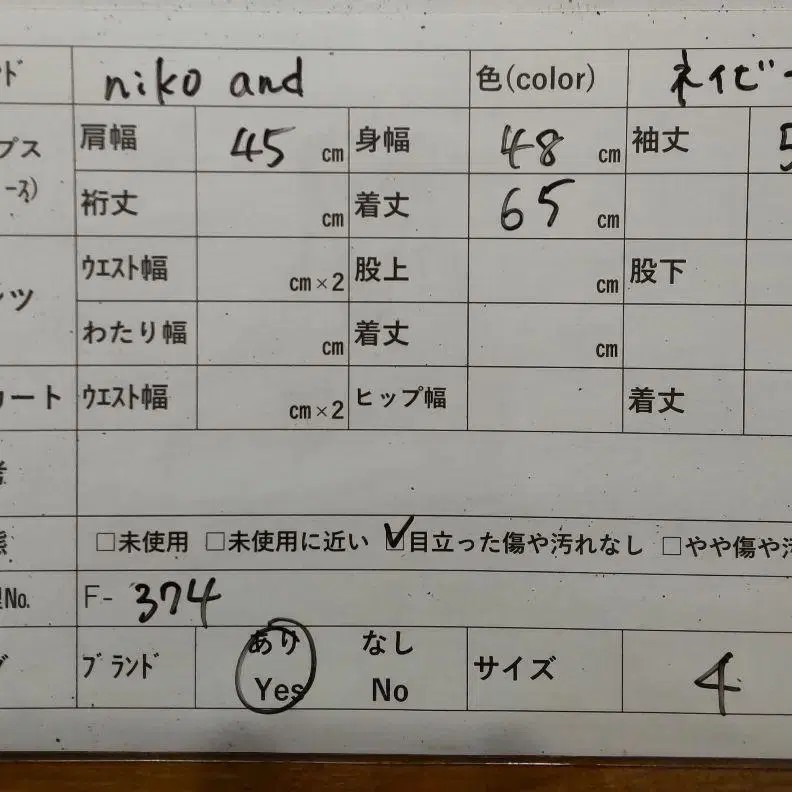 ド niko and 色(color) ネイビー
プス 肩幅 45 cm 身幅 48 cm 袖丈 5
ース) 裄丈 cm 着丈 65 cm
ンツ ウエスト幅 cm×2 股上 cm 股下
わたり幅 cm 着丈 cm
カート ウエスト幅 cm×2 ヒップ幅 着丈
考
態 □未使用 □未使用に近い ☑目立った傷や汚れなし □やや傷や汚
No. F- 374
グ ブランド あり Yes なし No サイズ 4